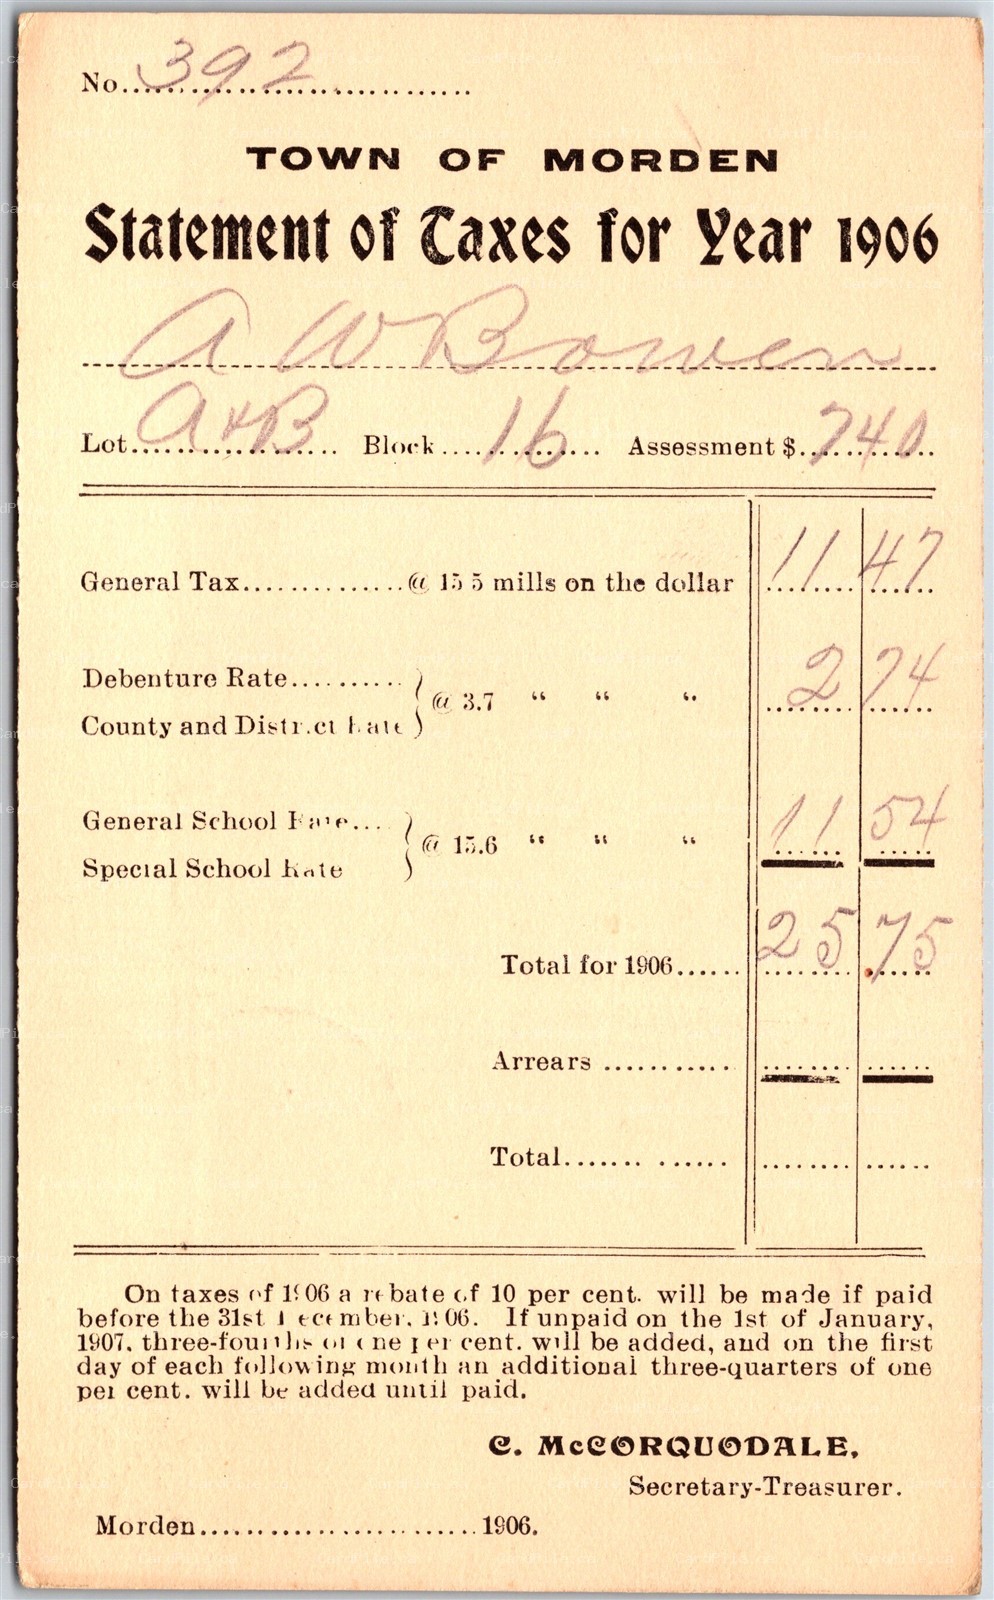 No. 392
TOWN OF MORDEN
Statement of Taxes for Year 1906
A W Bowen
Lot A & B Block 16 Assessment $ 740
General Tax @ 15 5 mills on the dollar 11 47
Debenture Rate
@ 3.7 " " " 2 74
County and District Rate
General School Rate
@ 15.6 " " " 11 54
Special School Rate
Total for 1906 25 75
Arrears
Total
On taxes of 1906 a rebate of 10 per cent. will be made if paid
before the 31st December, 1906. If unpaid on the 1st of January,
1907, three-fourths of one per cent. will be added, and on the first
day of each following month an additional three-quarters of one
per cent. will be added until paid.
C. McCORQUODALE,
Secretary-Treasurer.
Morden 1906.